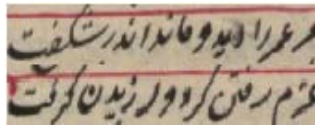 مر عمر را دید و ماند اندر شگفت
عزم رفتن کرد و لرزیدن گرفت